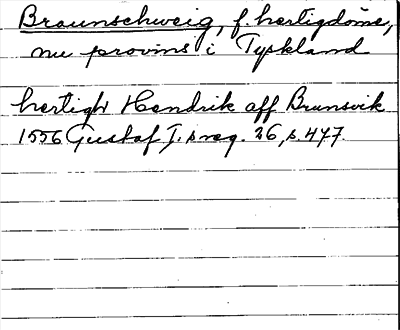 Braunschweig, f. hertigdöme,
nu provins i Tyskland
hertigh Hendrik aff Brunsvik
1556 Gustaf I:s reg. 26, s. 477.